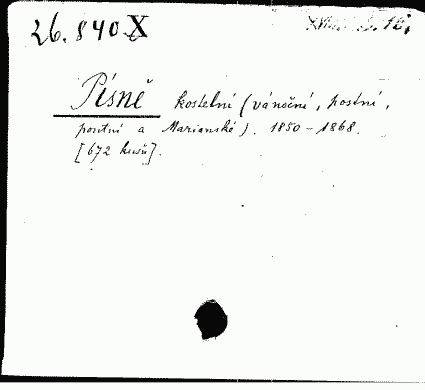 26.840 X
Písně kostelní (vánočné, postní,
poutní a Marianské). 1850-1868.
[672 kusů].